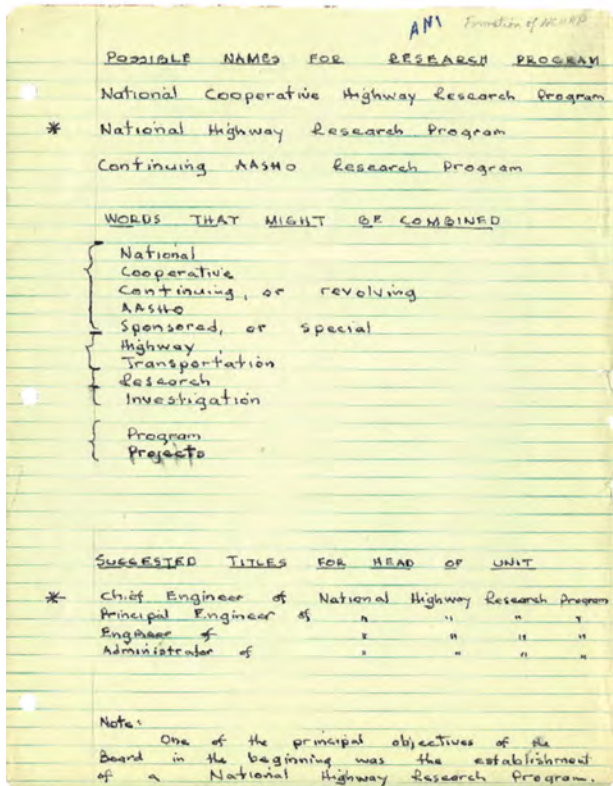 ANI Formation of NCHRP
POSSIBLE NAMES FOR RESEARCH PROGRAM
National Cooperative Highway Research Program
* National Highway Research Program
Continuing AASHO Research Program
WORDS THAT MIGHT BE COMBINED
National
Cooperative
Continuing, or revolving
AASHO
Sponsored, or special
Highway
Transportation
Research
Investigation
Program
Projects
SUGGESTED TITLES FOR HEAD OF UNIT
* Chief Engineer of National Highway Research Program
Principal Engineer of " " " "
Engineer of " " " "
Administrator of " " " "
Note:
One of the principal objectives of the
Board in the beginning was the establishment
of a National Highway Research Program.